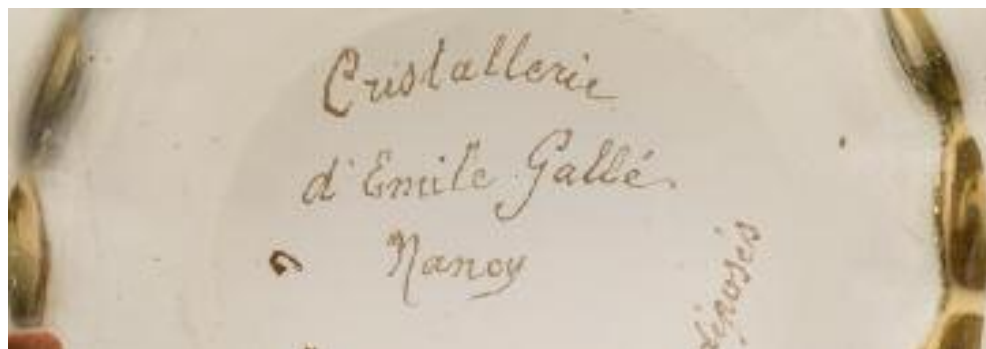 Cristallerie
d'Emile Gallé
Nancy
déposés